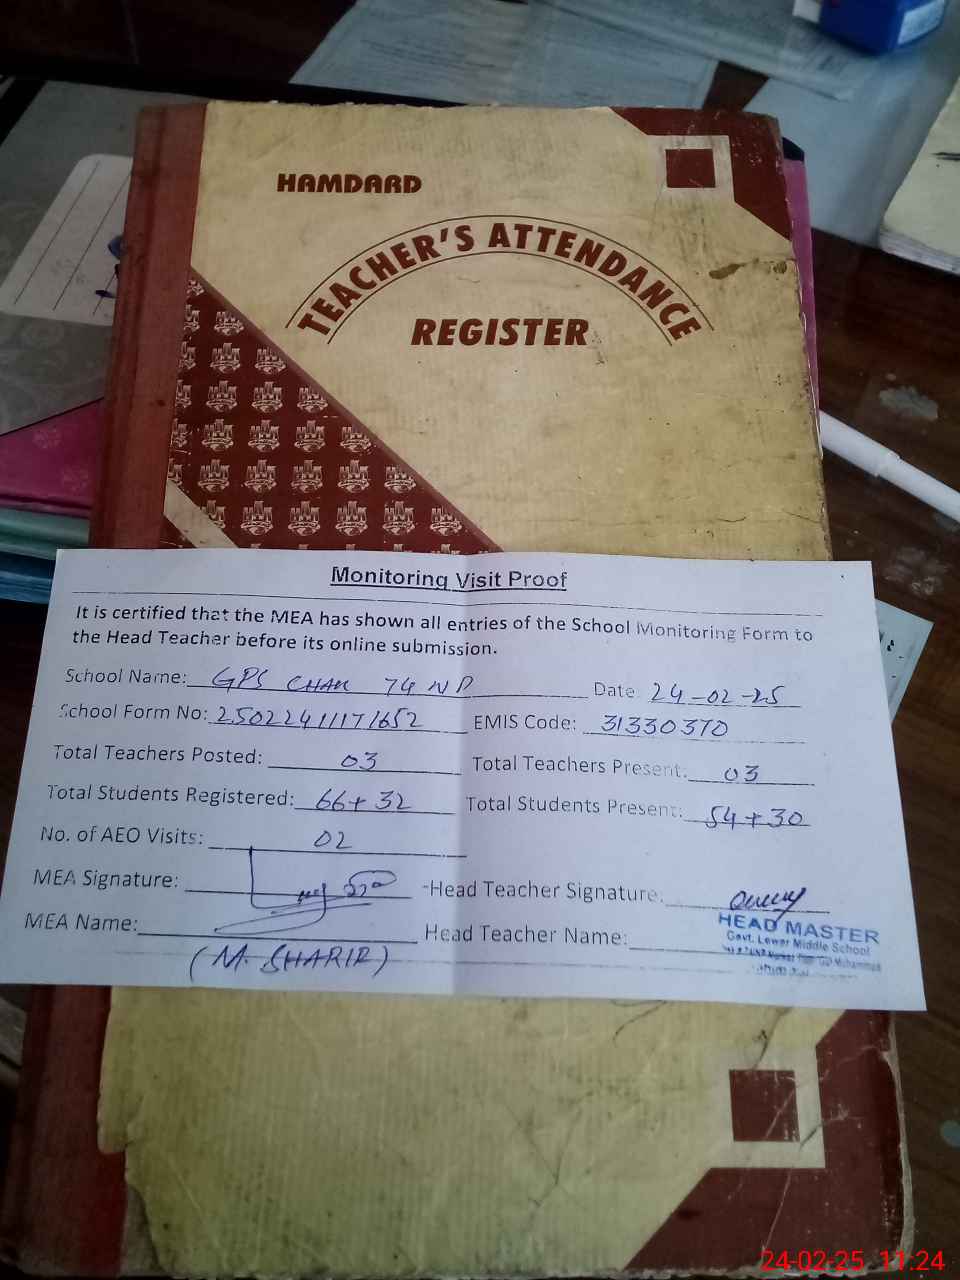 HAMDARD
TEACHER'S ATTENDANCE
REGISTER
Monitoring Visit Proof
It is certified that the MEA has shown all entries of the School Monitoring Form to
the Head Teacher before its online submission.
School Name: GPS CHAK 74 NP Date: 24-02-25
School Form No: 25022411171652 EMIS Code: 31330370
Total Teachers Posted: 03 Total Teachers Present: 03
Total Students Registered: 66+32 Total Students Present: 54+30
No. of AEO Visits: 02
MEA Signature: Head Teacher Signature:
MEA Name: Head Teacher Name:
(M. SHARIF)
HEAD MASTER
Govt. Lower Middle School
24-02-25 11:24